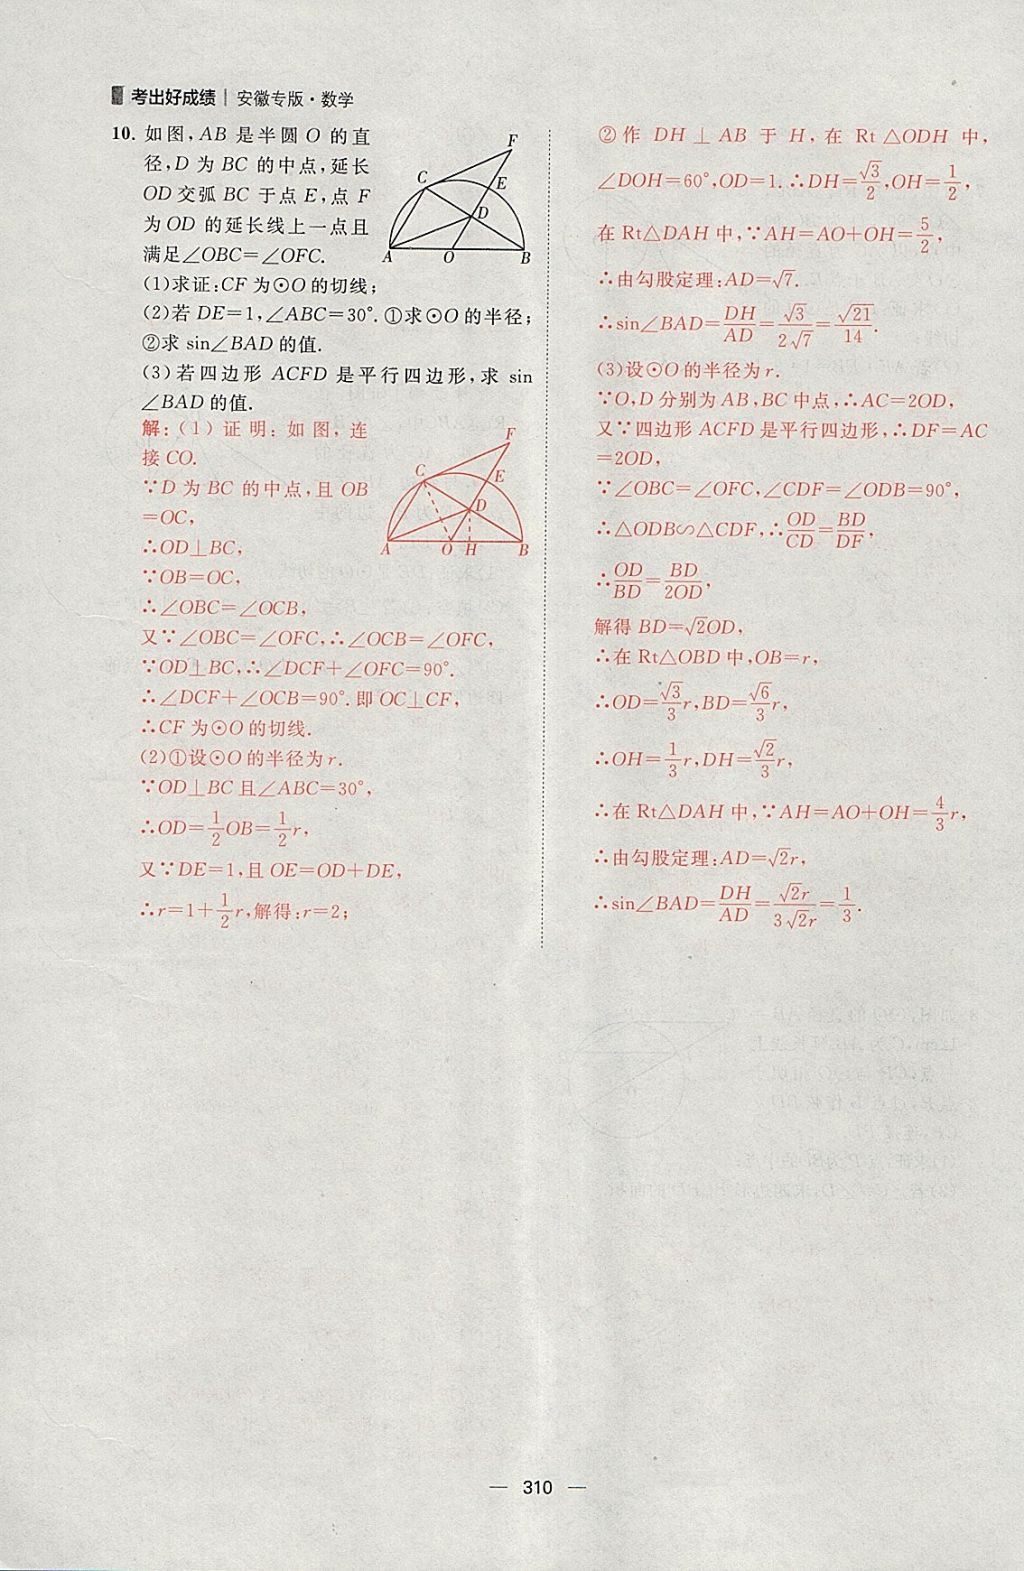 考出好成绩 | 安徽专版·数学
10. 如图,AB 是半圆 O 的直
径,D 为 BC 的中点,延长
OD 交弧 BC 于点 E,点 F
为 OD 的延长线上一点且
满足∠OBC=∠OFC.
(1)求证:CF 为⊙O 的切线;
(2)若 DE=1,∠ABC=30°.①求⊙O 的半径;
②求 sin∠BAD 的值.
(3)若四边形 ACFD 是平行四边形,求 sin
∠BAD 的值.
F
C
E
D
A
O
B
解:(1)证明:如图,连
接 CO.
∵D 为 BC 的中点,且 OB
=OC,
∴OD⊥BC,
∵OB=OC,
∴∠OBC=∠OCB,
又∵∠OBC=∠OFC,∴∠OCB=∠OFC,
∵OD⊥BC,∴∠DCF+∠OFC=90°.
∴∠DCF+∠OCB=90°.即 OC⊥CF,
∴CF 为⊙O 的切线.
(2)①设⊙O 的半径为 r.
∵OD⊥BC 且∠ABC=30°,
∴OD=1/2OB=1/2r,
又∵DE=1,且 OE=OD+DE,
∴r=1+1/2r,解得:r=2;
F
C
E
D
A
O
H
B
②作 DH⊥AB 于 H,在 Rt△ODH 中,
∠DOH=60°,OD=1.∴DH=√3/2,OH=1/2,
在 Rt△DAH 中,∵AH=AO+OH=5/2,
∴由勾股定理:AD=√7.
∴sin∠BAD=DH/AD=√3/2√7=√21/14.
(3)设⊙O 的半径为 r.
∵O,D 分别为 AB,BC 中点,∴AC=2OD,
又∵四边形 ACFD 是平行四边形,∴DF=AC
=2OD,
∵∠OBC=∠OFC,∠CDF=∠ODB=90°,
∴△ODB∽△CDF,∴OD/CD=BD/DF,
∴OD/BD=BD/2OD,
解得 BD=√2OD,
∴在 Rt△OBD 中,OB=r,
∴OD=√3/3r,BD=√6/3r,
∴OH=1/3r,DH=√2/3r,
∴在 Rt△DAH 中,∵AH=AO+OH=4/3r,
∴由勾股定理:AD=√2r,
∴sin∠BAD=DH/AD=√2r/3√2r=1/3.
— 310 —